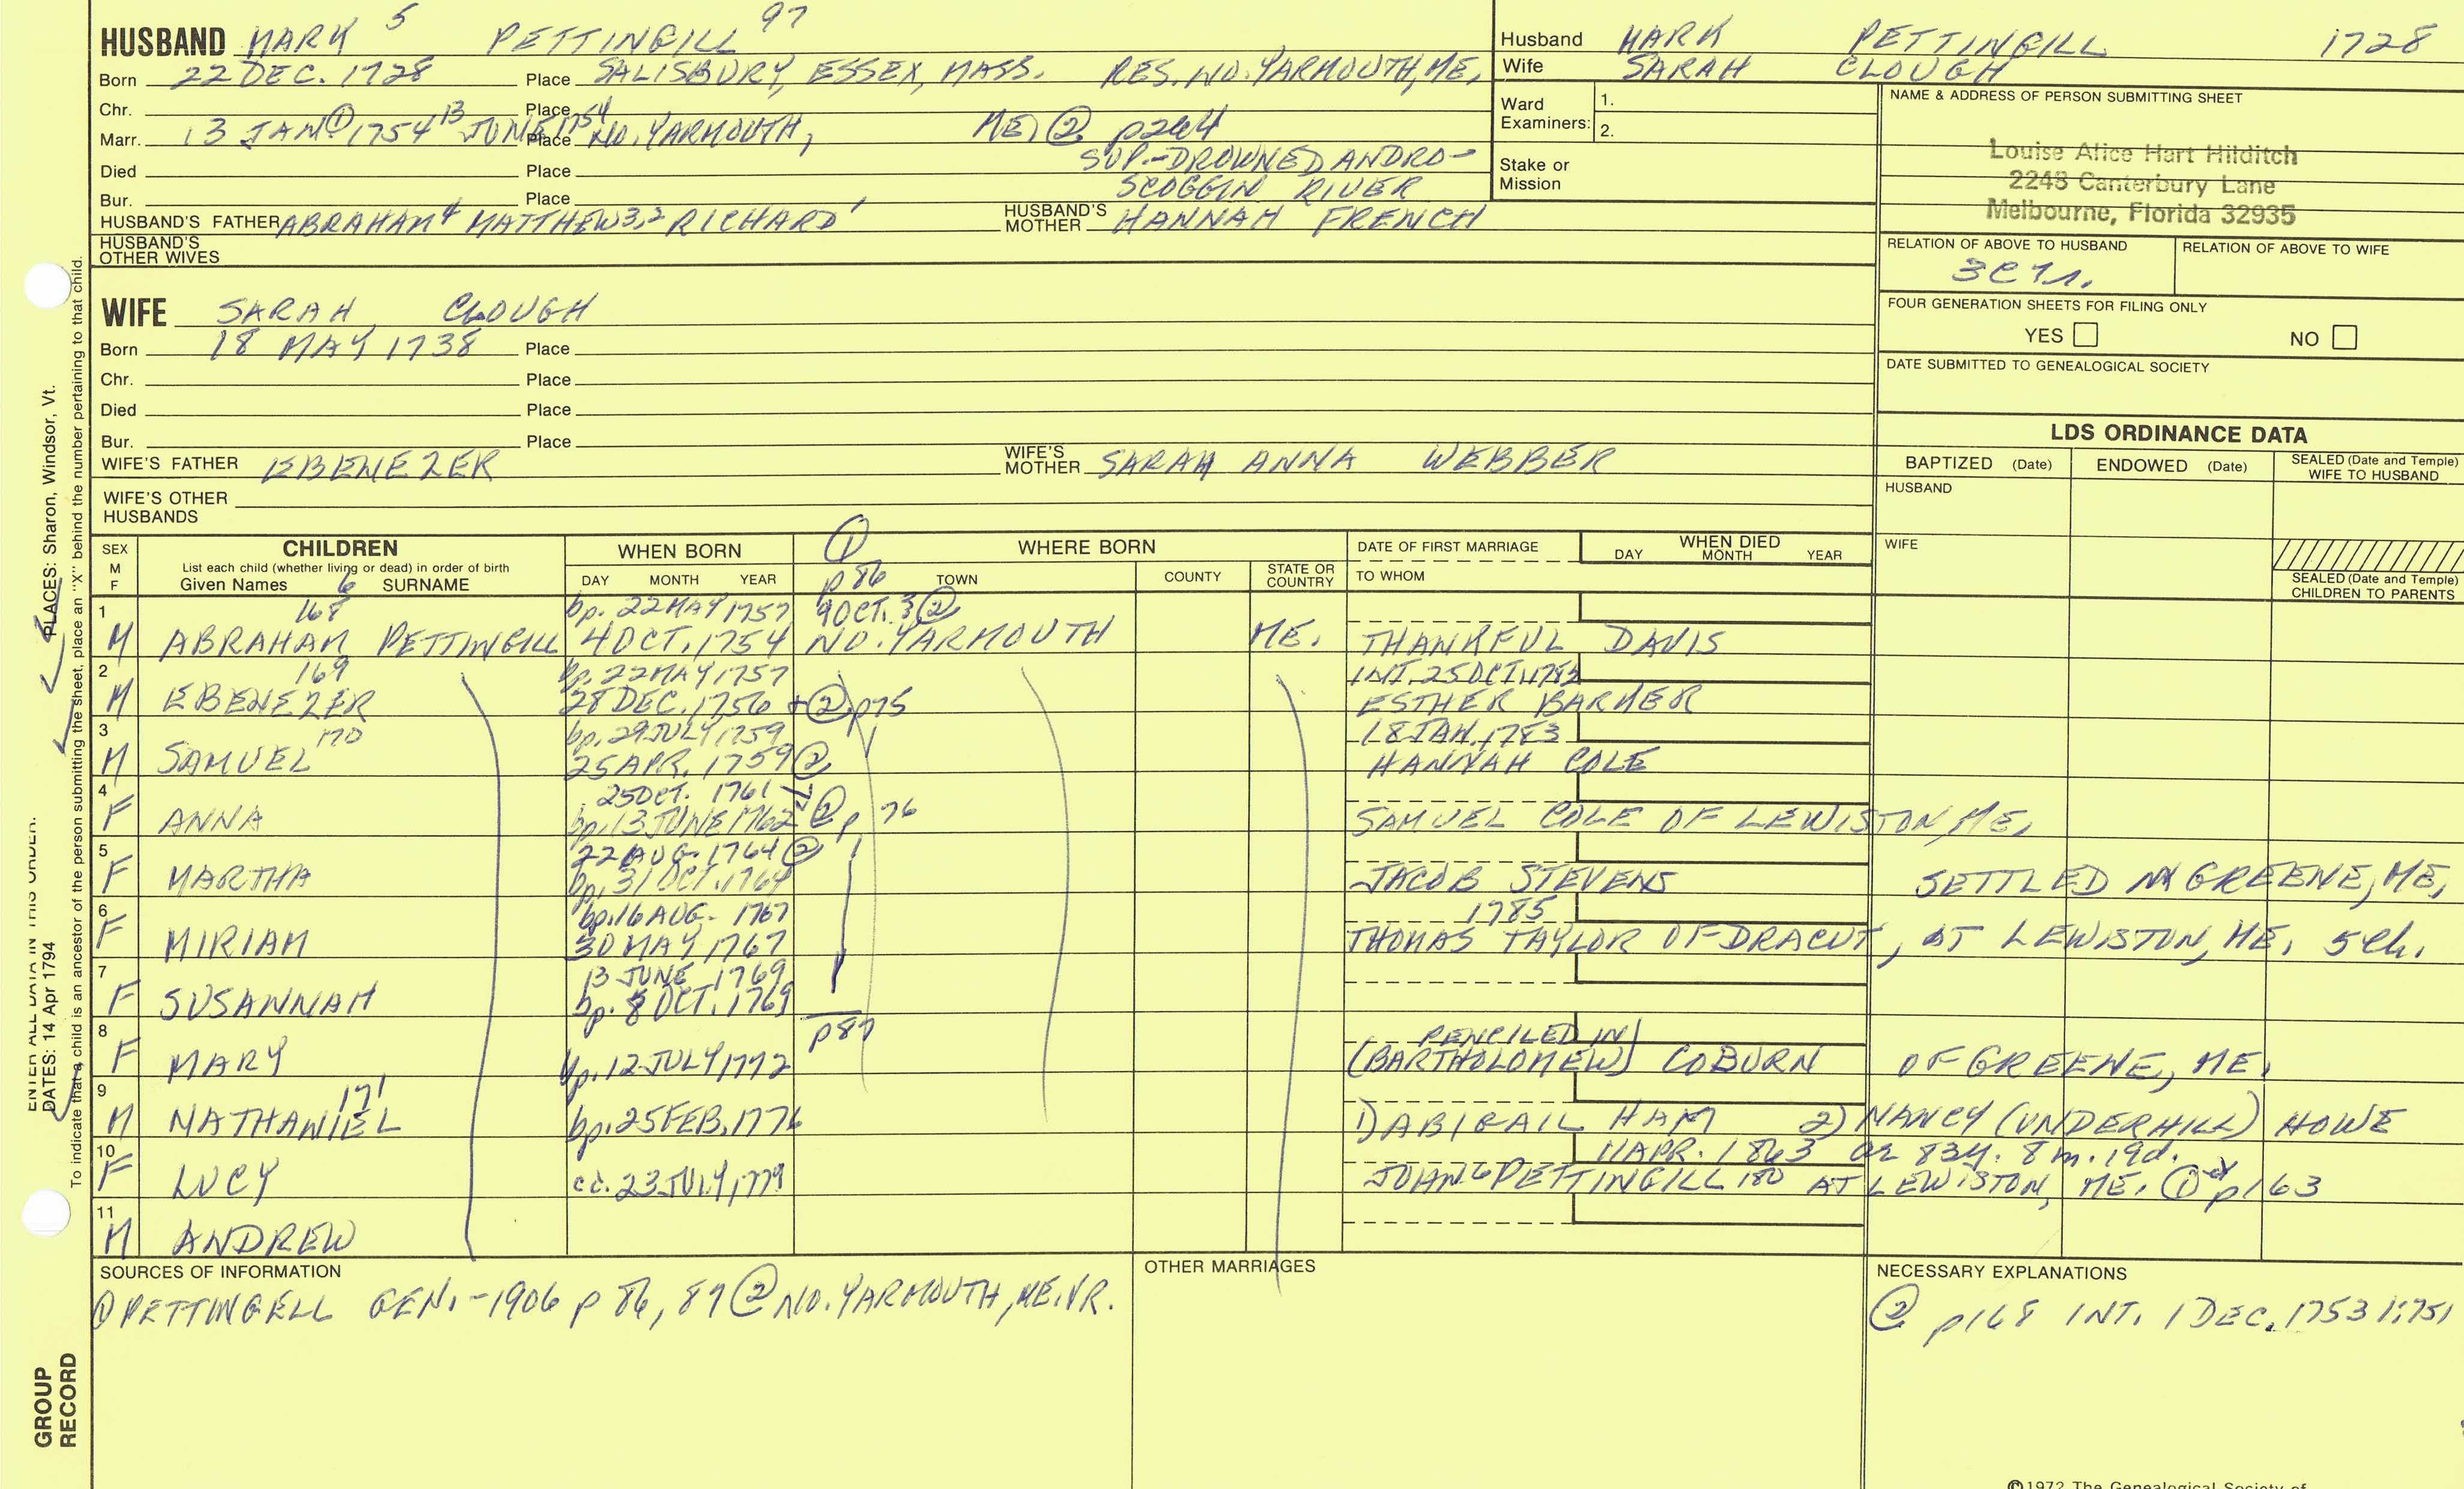 HUSBAND MARK 5 PETTINGILL 97
Born 22 DEC. 1728 Place SALISBURY, ESSEX, MASS. RES. NO. YARMOUTH, ME,
Chr. Place
Marr. 13 JAN ① 1754 13 JUNE 1754 Place NO. YARMOUTH, ME, ② p264
Died Place SUP.-DROWNED ANDRO-
Bur. Place SCOGGIN RIVER
HUSBAND'S FATHER ABRAHAM 4 MATTHEW 3,2 RICHARD 1 HUSBAND'S MOTHER HANNAH FRENCH
HUSBAND'S OTHER WIVES
Husband MARK PETTINGILL 1728
Wife SARAH CLOUGH
Ward Examiners: 1.
2.
Stake or Mission
NAME & ADDRESS OF PERSON SUBMITTING SHEET
Louise Alice Hart Hilditch
2248 Canterbury Lane
Melbourne, Florida 32935
RELATION OF ABOVE TO HUSBAND RELATION OF ABOVE TO WIFE
FOUR GENERATION SHEETS FOR FILING ONLY
YES NO
DATE SUBMITTED TO GENEALOGICAL SOCIETY
WIFE SARAH CLOUGH
Born 18 MAY 1738 Place
Chr. Place
Died Place
Bur. Place
WIFE'S FATHER EBENEZER WIFE'S MOTHER SARAH ANNA WEBBER
WIFE'S OTHER HUSBANDS
LDS ORDINANCE DATA
BAPTIZED (Date) ENDOWED (Date) SEALED (Date and Temple) WIFE TO HUSBAND
HUSBAND
WIFE
SEALED (Date and Temple) CHILDREN TO PARENTS
SEX M F CHILDREN List each child (whether living or dead) in order of birth Given Names 6 SURNAME
WHEN BORN DAY MONTH YEAR
① p86 WHERE BORN TOWN COUNTY STATE OR COUNTRY
DATE OF FIRST MARRIAGE TO WHOM
WHEN DIED DAY MONTH YEAR
1 168 bp. 22 MAY 1757 9 OCT. 3 ②
M ABRAHAM PETTINGILL 4 OCT. 1754 NO. YARMOUTH ME. THANKFUL DAVIS
2 169 bp. 22 MAY 1757 INT. 25 OCT. 1782
M EBENEZER 28 DEC. 1756 + ② p75 ESTHER BARKER
3 170 bp. 29 JULY 1759 18 JAN. 1783
M SAMUEL 25 APR. 1759 ② HANNAH COLE
4 25 OCT. 1761
F ANNA bp. 13 JUNE 1762 ② p 76 SAMUEL COLE OF LEWISTON, ME,
5 22 AUG. 1764 ②
F MARTHA bp. 31 OCT. 1764 JACOB STEVENS SETTLED IN GREENE, ME,
6 bp. 16 AUG. 1767 1785
F MIRIAM 30 MAY 1767 THOMAS TAYLOR OF DRACUT, AT LEWISTON, ME, 5 ch.
7 13 JUNE 1769
F SUSANNAH bp. 8 OCT. 1769
8 p87 PENCILED IN
F MARY bp. 12 JULY 1772 (BARTHOLOMEW) COBURN OF GREENE, ME.
9 171
M NATHANIEL bp. 25 FEB. 1776 1) ABIGAIL HAM 2) NANCY (UNDERHILL) HOWE
10 11 APR. 1863 ae 83y. 8m. 19d.
F LUCY cc. 23 JULY, 1779 JOHN 6 PETTINGILL 180 AT LEWISTON, ME. ① p163
11
M ANDREW
SOURCES OF INFORMATION
① PETTINGELL GEN. -1906 p 86, 87 ② NO. YARMOUTH, ME. VR.
OTHER MARRIAGES
NECESSARY EXPLANATIONS
② p168 INT. 1 DEC. 1753 1:751
ENTER ALL DATA IN THIS ORDER:
DATES: 14 Apr 1794 PLACES: Sharon, Windsor, Vt.
To indicate that a child is an ancestor of the person submitting the sheet, place an "X" behind the number pertaining to that child.
GROUP RECORD
©1972 The Genealogical Society of